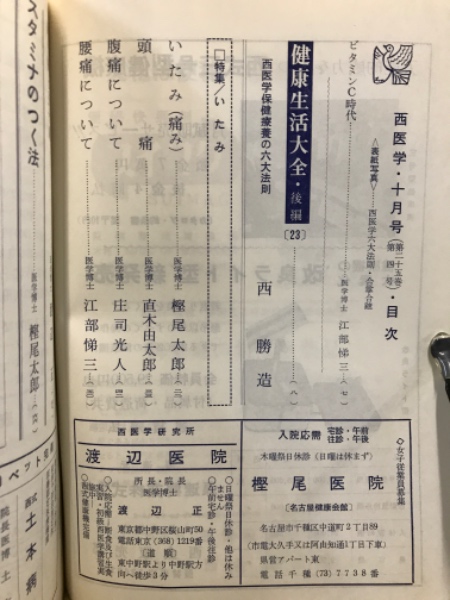 西医学・十月号(第三十五巻 第四号)・目次
<表紙写真>……西医学六大法則・合掌合蹠
ビタミンC時代……医学博士 江部悌三…(七)
健康生活大全・後編〔23〕……西勝造……(八)
西医学保健療養の六大法則
□特集/いたみ
いたみ(痛み)……医学博士 樫尾太郎
頭痛……医学博士 直木由太郎
腹痛について……医学博士 庄司光人
腰痛について……医学博士 江部悌三
スタミナのつく法……医学博士 樫尾太郎
◇女子従業員募集
入院応需 宅診・午前 往診・午後
木曜祭日休診(日曜は休まず)
樫尾医院
〔名古屋健康会館〕
名古屋市千種区中道町2丁目89
(市電大久手又は阿由知通1丁目下車)
風雪アパート東
電話千種(73)7738番
西医学研究所
渡辺医院
所長・院長
医学博士
渡辺正
◇日曜祭日休診・他は休みません
◇午前宅診・午後往診
◇入院応需
東京都中野区桜山町50
電話東京(368)1219番
(道順)
東中野駅より中野駅方向へ徒歩3分
ベット
西式
土本病
院長医博